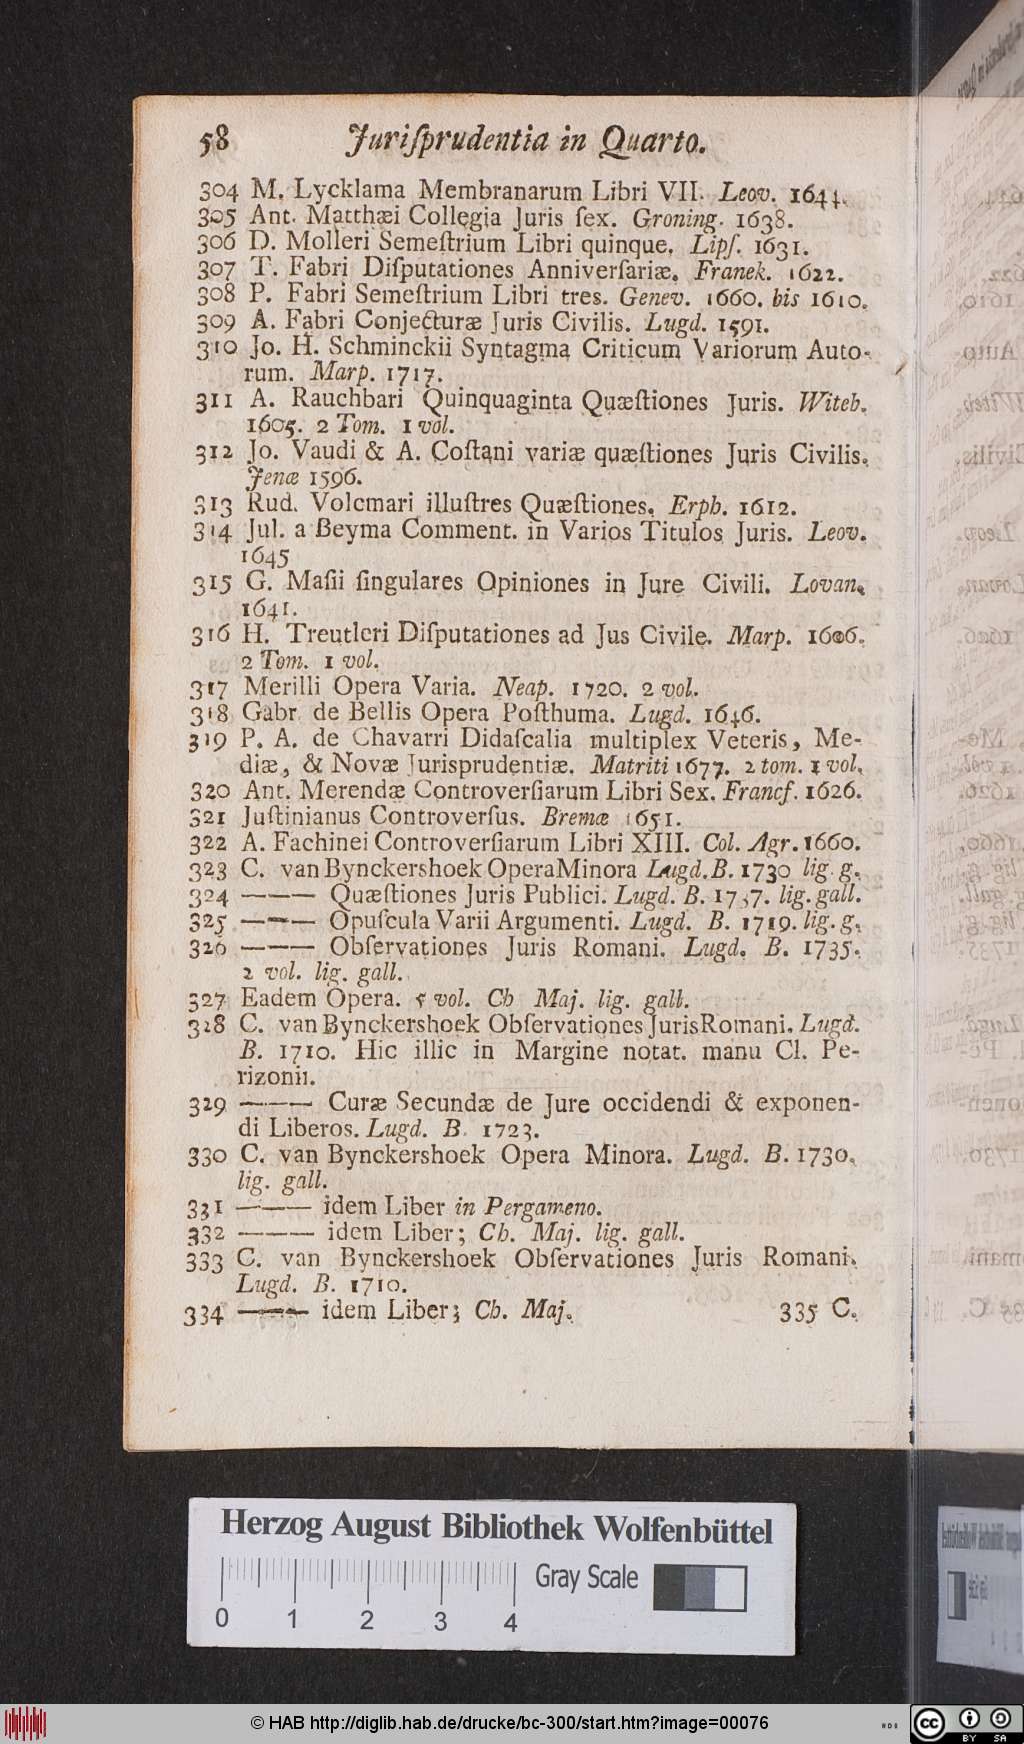 58 Juriſprudentia in Quarto.
304 M. Lycklama Membranarum Libri VII. Leov. 1644.
305 Ant. Matthæi Collegia Juris ſex. Groning. 1638.
306 D. Molleri Semeſtrium Libri quinque. Lipſ. 1631.
307 T. Fabri Diſputationes Anniverſariæ. Franek. 1622.
308 P. Fabri Semeſtrium Libri tres. Genev. 1660. bis 1610.
309 A. Fabri Conjecturæ Juris Civilis. Lugd. 1591.
310 Jo. H. Schminckii Syntagma Criticum Variorum Auto-
rum. Marp. 1717.
311 A. Rauchbari Quinquaginta Quæſtiones Juris. Witeb.
1605. 2 Tom. 1 vol.
312 Jo. Vaudi & A. Coſtani variæ quæſtiones Juris Civilis.
Jenæ 1596.
313 Rud. Volcmari illuſtres Quæſtiones. Erph. 1612.
314 Jul. a Beyma Comment. in Varios Titulos Juris. Leov.
1645
315 G. Maſii ſingulares Opiniones in Jure Civili. Lovan.
1641.
316 H. Treutleri Diſputationes ad Jus Civile. Marp. 1606.
2 Tom. 1 vol.
317 Merilli Opera Varia. Neap. 1720. 2 vol.
318 Gabr. de Bellis Opera Poſthuma. Lugd. 1646.
319 P. A. de Chavarri Didaſcalia multiplex Veteris, Me-
diæ, & Novæ Jurisprudentiæ. Matriti 1677. 2 tom. 1 vol.
320 Ant. Merendæ Controverſiarum Libri Sex. Francf. 1626.
321 Juſtinianus Controverſus. Bremæ 1651.
322 A. Fachinei Controverſiarum Libri XIII. Col. Agr. 1660.
323 C. van Bynckershoek Opera Minora Lugd. B. 1730 lig. g.
324 ——— Quæſtiones Juris Publici. Lugd. B. 1737. lig. gall.
325 ——— Opuſcula Varii Argumenti. Lugd. B. 1719. lig. g.
326 ——— Obſervationes Juris Romani. Lugd. B. 1735.
2 vol. lig. gall.
327 Eadem Opera. 5 vol. Ch Maj. lig. gall.
328 C. van Bynckershoek Obſervationes Juris Romani. Lugd.
B. 1710. Hic illic in Margine notat. manu Cl. Pe-
rizonii.
329 ——— Curæ Secundæ de Jure occidendi & exponen-
di Liberos. Lugd. B. 1723.
330 C. van Bynckershoek Opera Minora. Lugd. B. 1730.
lig. gall.
331 ——— idem Liber in Pergameno.
332 ——— idem Liber; Ch. Maj. lig. gall.
333 C. van Bynckershoek Obſervationes Juris Romani.
Lugd. B. 1710.
334 ——— idem Liber; Ch. Maj. 335 C.
Herzog August Bibliothek Wolfenbüttel
Gray Scale
0 1 2 3 4
© HAB http://diglib.hab.de/drucke/bc-300/start.htm?image=00076
cc BY SA